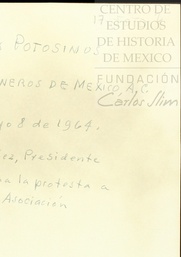 CENTRO DE
17
ESTUDIOS
DE HISTORIA
DE MEXICO
POTOSINOS
FUNDACIÓN
NEROS DE MEXICO, A.C.
Carlos Slim
yo 8 de 1964.
ez, Presidente
la protesta a
Asociación